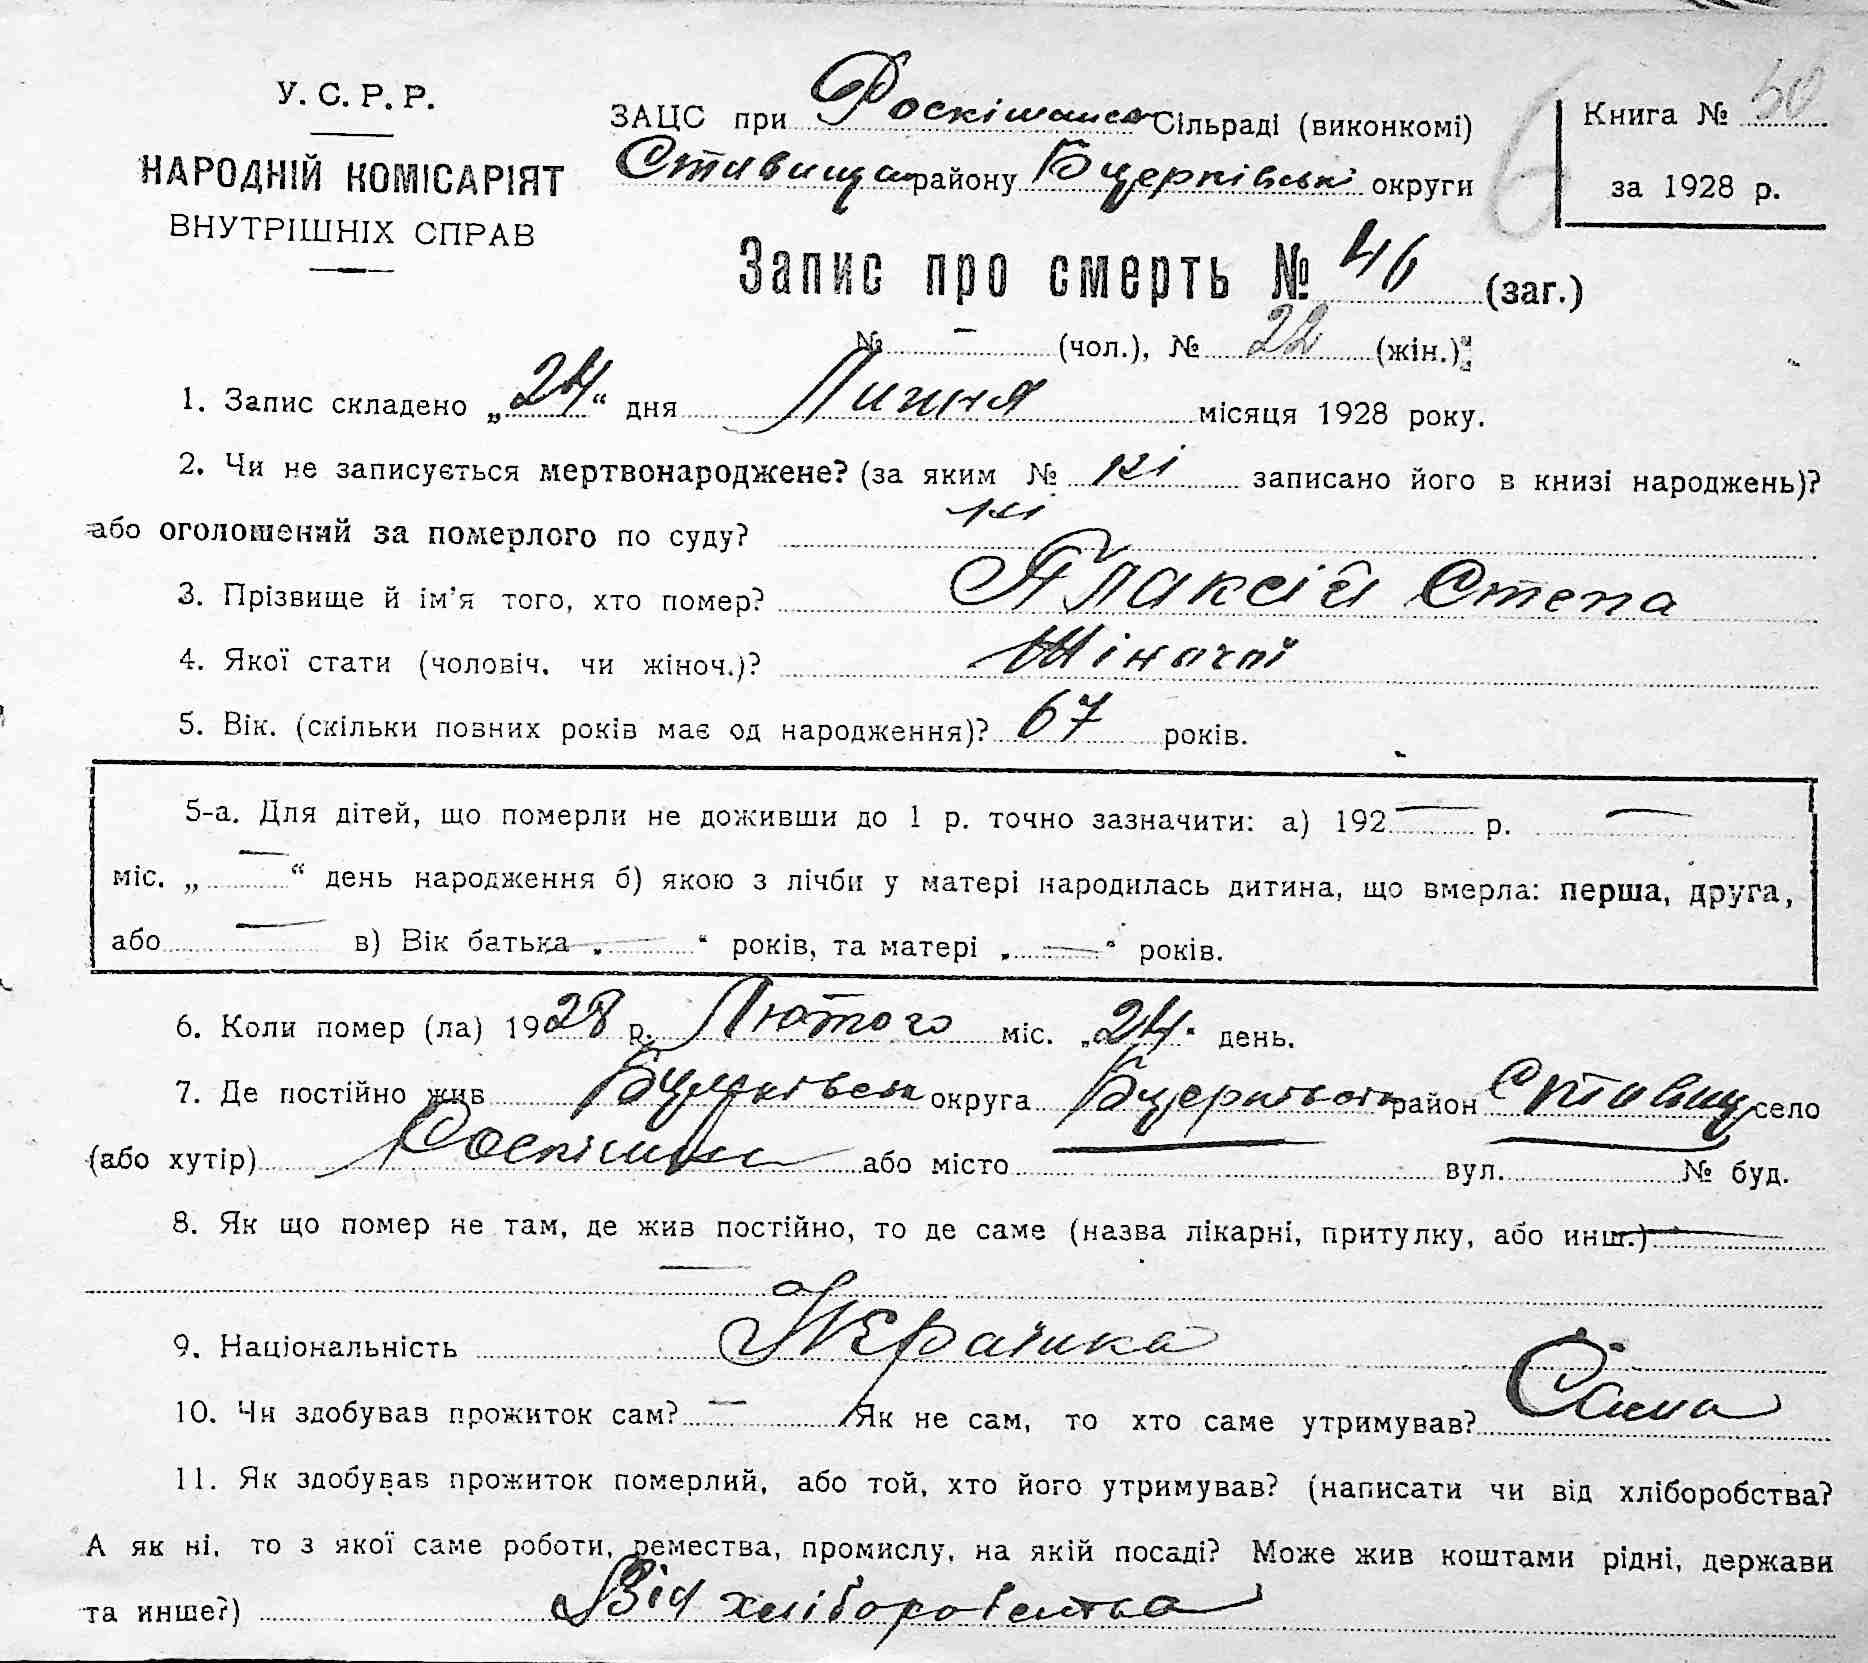 У. С. Р. Р.
НАРОДНІЙ КОМІСАРІЯТ
ВНУТРІШНІХ СПРАВ
ЗАЦС при Роскішанск Сільраді (виконкомі)
Ставищан району Бцерківські округи
6
Книга № 50
за 1928 р.
Запис про смерть № 46 (заг.)
№ – (чол.), № 22 (жін.)
1. Запис складено „24“ дня Липня місяця 1928 року.
2. Чи не записується мертвонароджене? (за яким № ні записано його в книзі народжень)?
або оголошений за померлого по суду? ні
3. Прізвище й ім'я того, хто помер? Палаксій Степа
4. Якої стати (чоловіч. чи жіноч.)? Жіночої
5. Вік. (скільки повних років має од народження)? 67 років.
5-а. Для дітей, що померли не доживши до 1 р. точно зазначити: а) 192— р. —
міс. „—“ день народження б) якою з лічби у матері народилась дитина, що вмерла: перша, друга,
або — в) Вік батька „—“ років, та матері „—“ років.
6. Коли помер (ла) 1928 р. Лютого міс. „24“ день.
7. Де постійно жив Бцерківськ округа Бцерківськ район Ставищ село
(або хутір) Роскішна або місто вул. № буд.
8. Як що помер не там, де жив постійно, то де саме (назва лікарні, притулку, або инш.) —
—
9. Національність Українка
10. Чи здобував прожиток сам? — Як не сам, то хто саме утримував? Сама
11. Як здобував прожиток померлий, або той, хто його утримував? (написати чи від хліборобства?
А як ні, то з якої саме роботи, ремества, промислу, на якій посаді? Може жив коштами рідні, держави
та инше?) Від хліборобства